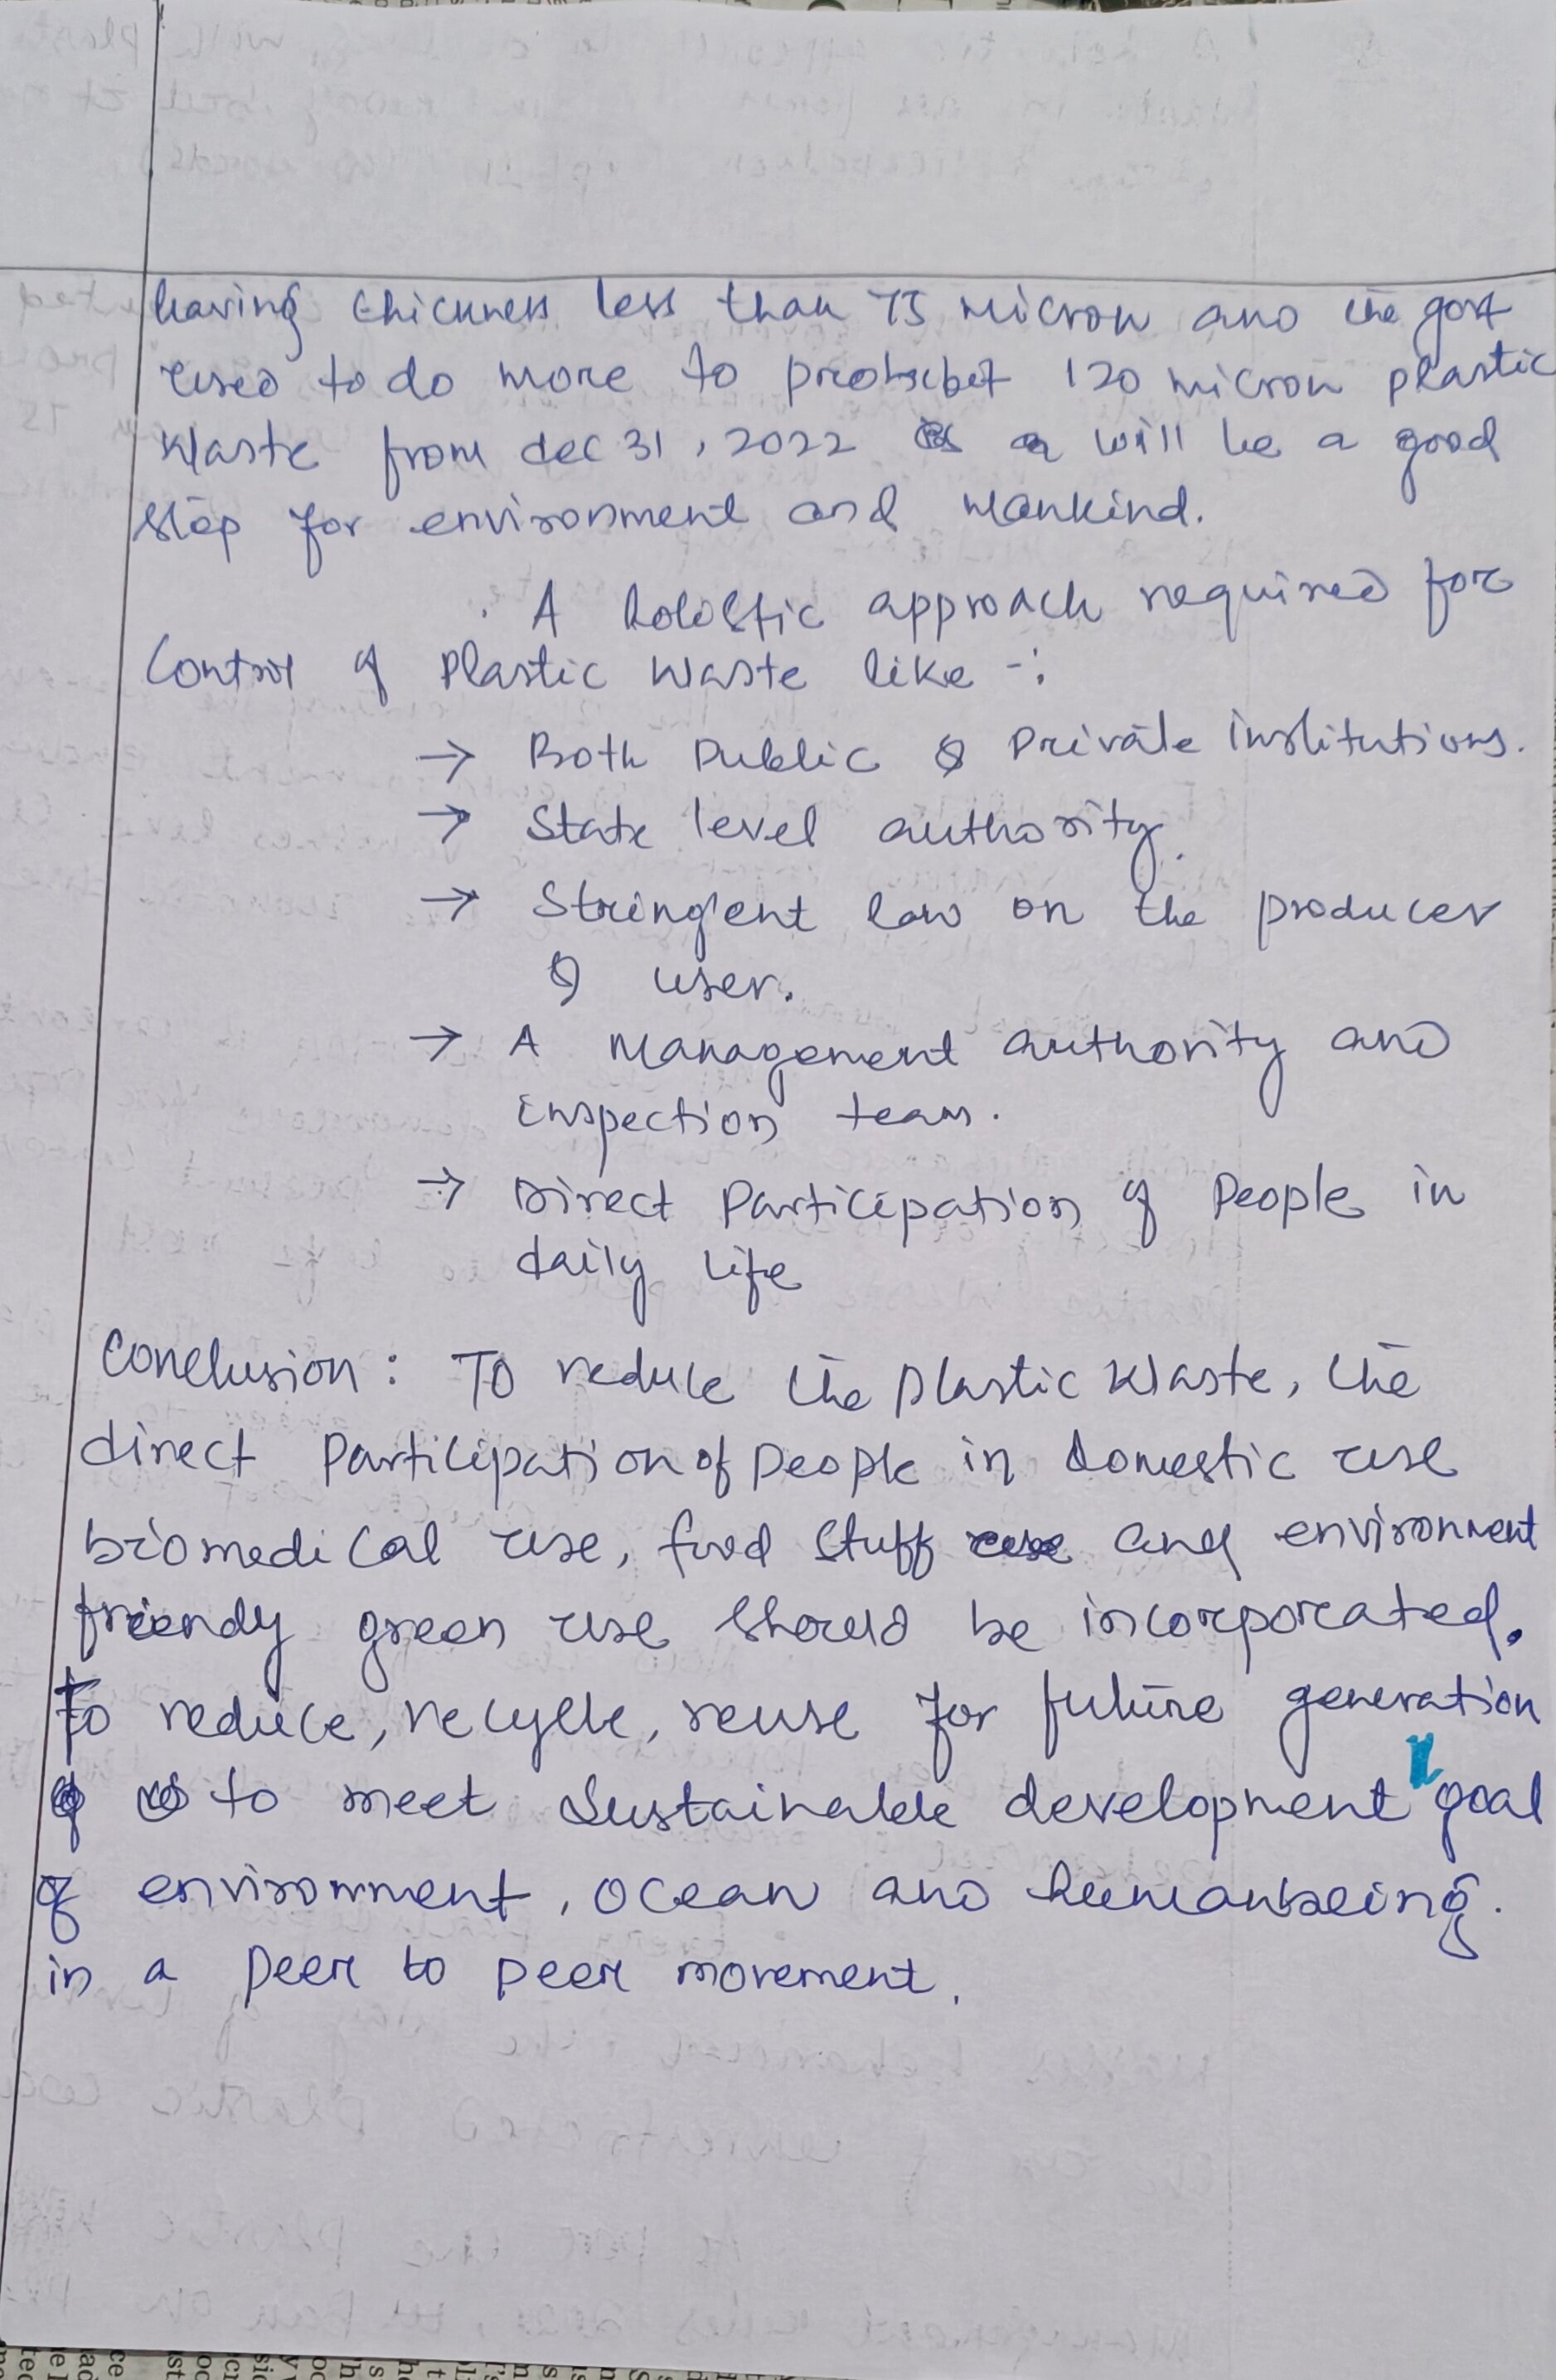 having thickness less than 75 micron and the govt
used to do more to prohibet 120 micron plastic
Waste from dec 31, 2022 will be a good
step for environment and mankind.
A holistic approach required for
Control of Plastic Waste like -:
→ Both Public & Private institutions.
→ State level authority.
→ Stringent law on the producer
& user.
→ A Management authority and
inspection team.
→ Direct Participation of People in
daily life
Conclusion: To reduce the plastic Waste, the
direct Participation of People in domestic use
biomedical use, food stuff and environment
friendy green use should be incorporated.
To reduce, recycle, reuse for future generation
to meet Sustainable development goal
of environment, ocean and humanbeing.
in a peer to peer movement.